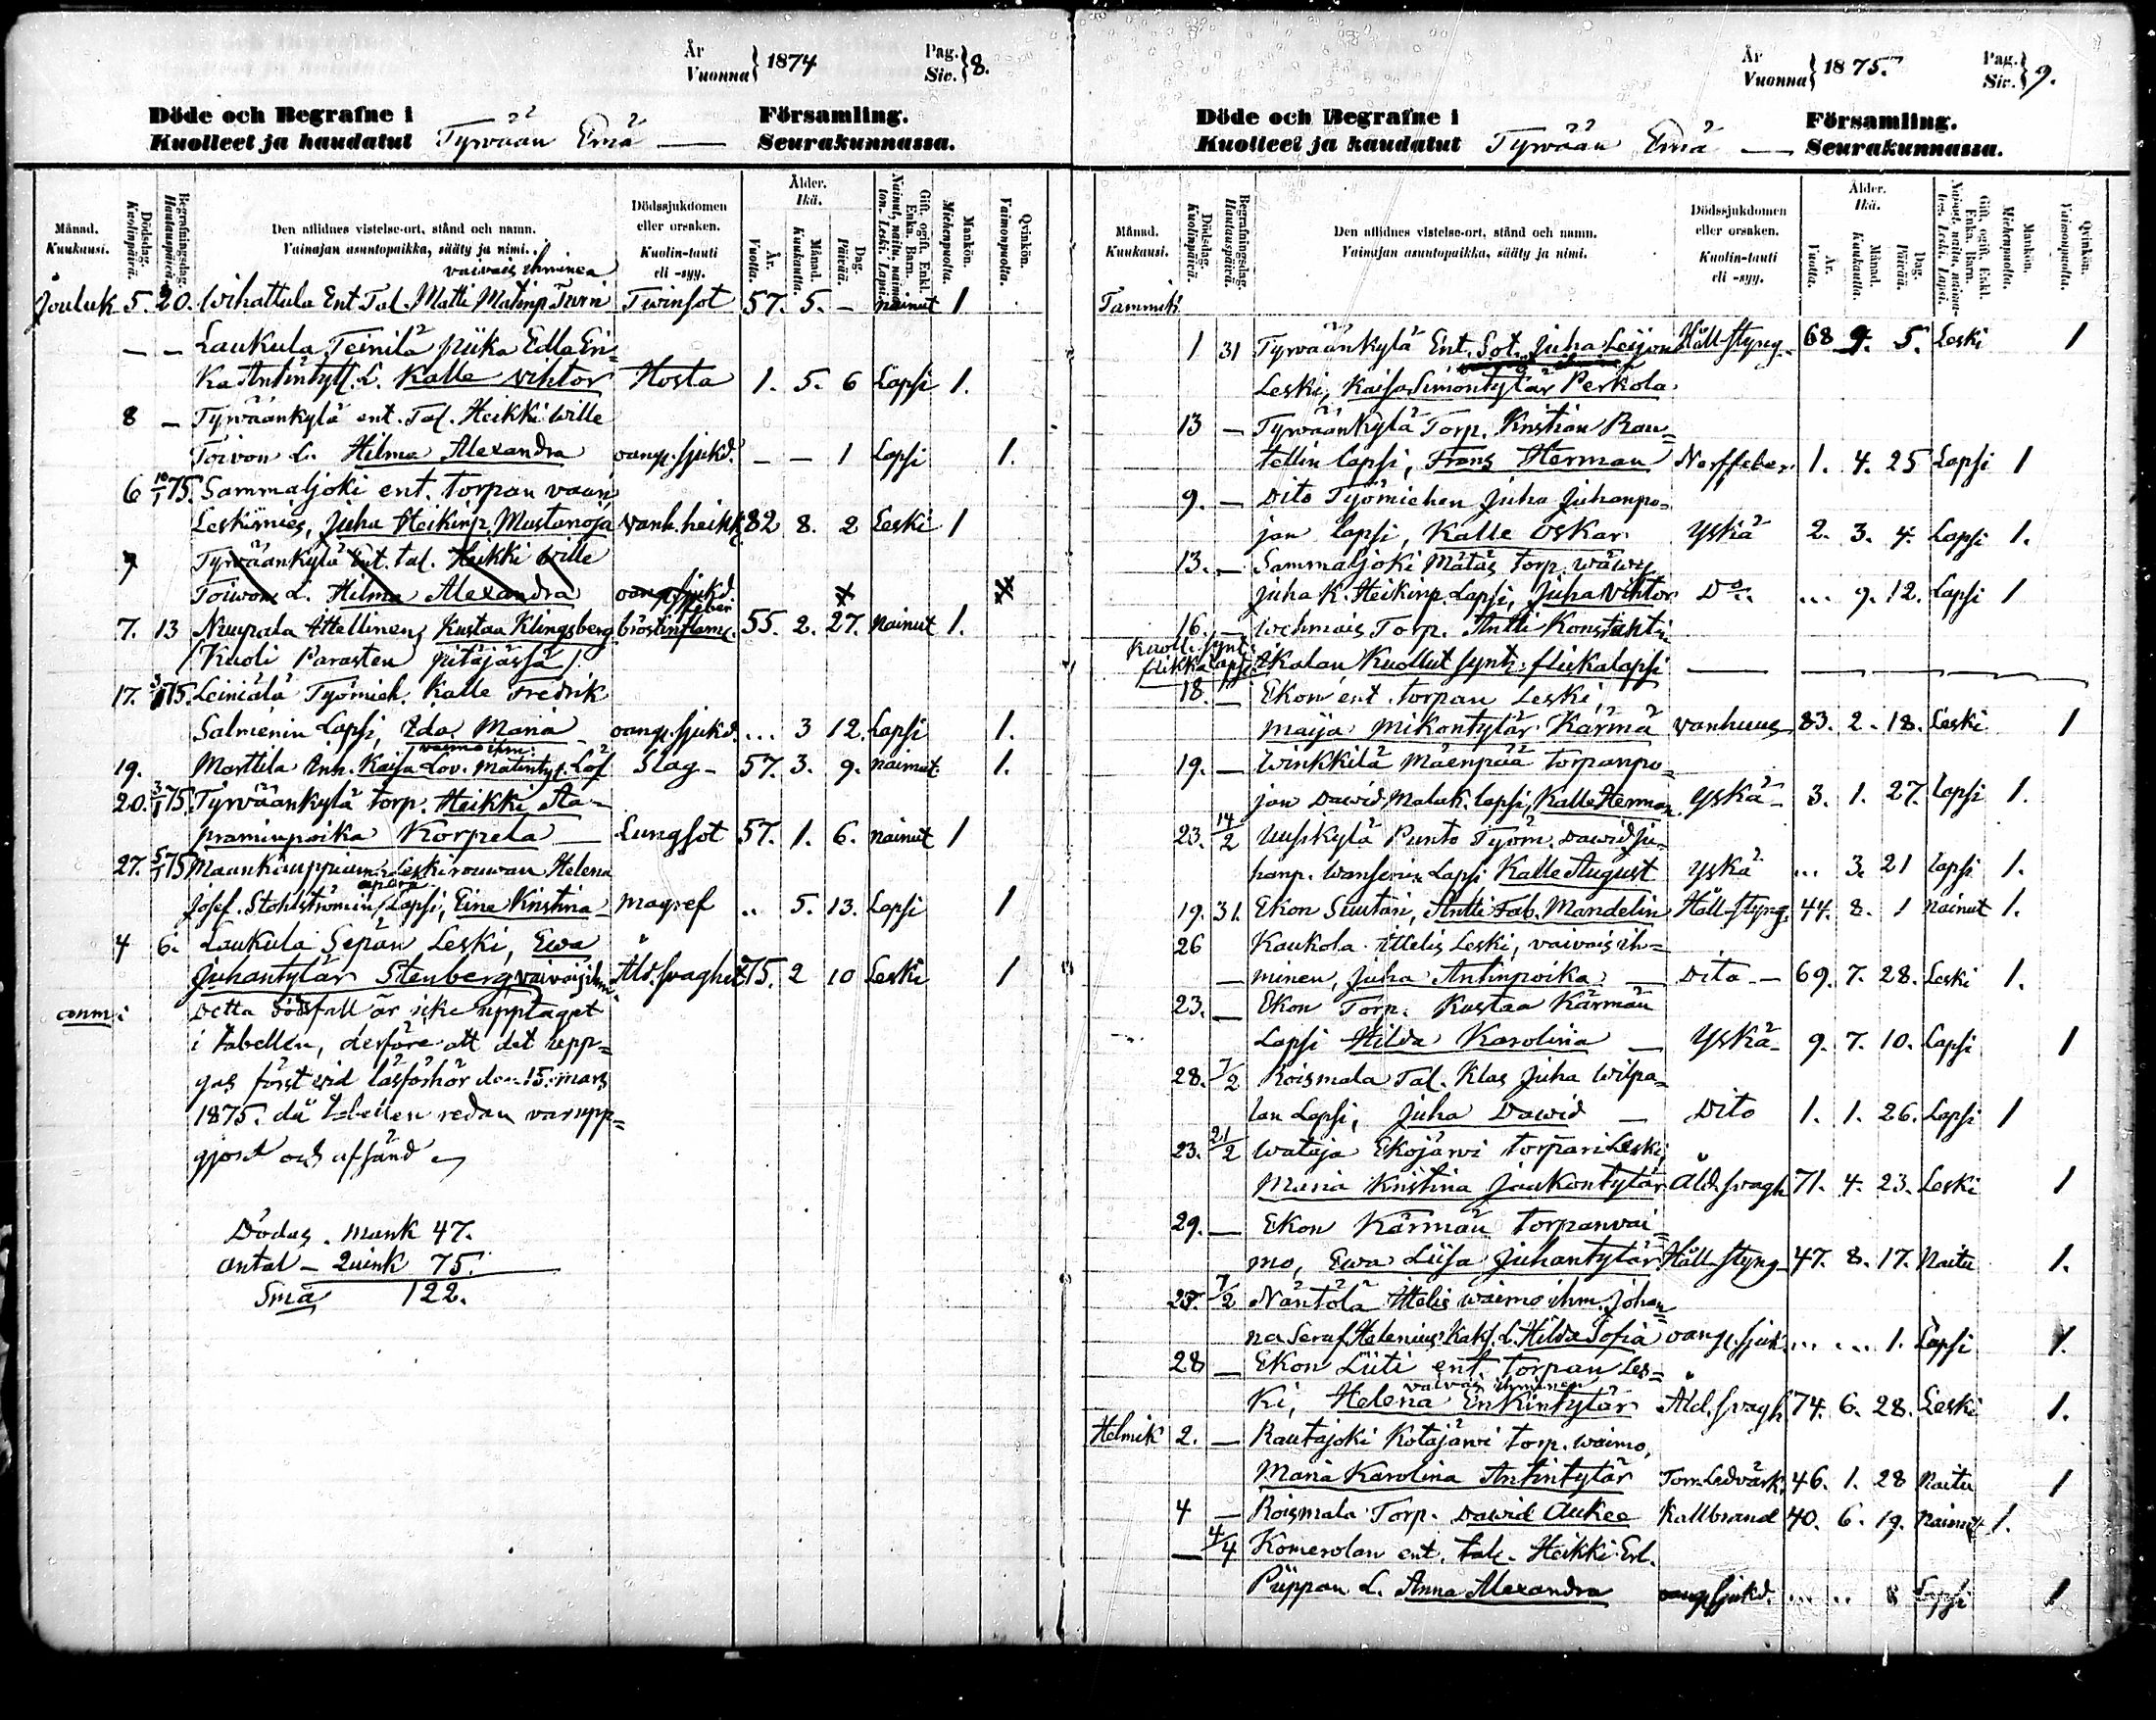 År
Vuonna } 1874
Pag.
Siv. } 8.
Döde och Begrafne i
Kuolleet ja haudatut Tyrvään Emä — Församling.
Seurakunnassa.
Månad.
Kuukausi.
Dödsdag.
Kuolinpäivä.
Begrafningsdag.
Hautauspäivä.
Den aflidnes vistelse-ort, stånd och namn.
Vainajan asuntopaikka, sääty ja nimi.
Dödssjukdomen
eller orsaken.
Kuolin-tauti
eli -syy.
Ålder.
Ikä.
År.
Vuotta.
Månad.
Kuukautta.
Dag.
Päivää.
Gift, ogift, Enkl.
Enka, Barn.
Mankön.
Miehenpuolta.
Qvinkön.
Vaimonpuolta.
vaivais ihminen
Jouluk 5. 20. Wihattula Ent Tal Matti Matinp Twinsot 57. 5. - nainut 1
— — Laukula Teinilä piika Edla Eri=
ka Antintytt. L. Kalle Viktor Hosta 1. 5. 6 Lapsi 1.
8 — Tyrväänkylä ent. Tal. Heikki Wille
Toivon L. Hilma Alexandra oangs. sjukd. — — 1 Lapsi 1.
6 10/1 75. Sammaljoki ent. torpan vaari
Leskimies, Juha Heikinp. Mustanoja vanh. heikk. 82 8. 2 Leski 1
7 Tyrväänkylä Ent. tal. Heikki Wille
Toiwon L. Hilma Alexandra oangs. sjukd.
7. 13 Nuupala Ittellinen, Kustaa Klingsberg bröstinflam. feber 55. 2. 27. nainut 1.
(Kuoli Parasten pitäjässä).
17. 3/1 75. Leiniälä Työmieh. Kalle Fredrik
Salmenin Lapsi, Ida Maria oangs. sjukd. ... 3 12. Lapsi 1.
vaimoihm.
19. Marttila Anh. Kaisa Lov. Matintyt. Löf Slag - 57. 3. 9. nainut 1.
20. 3/1 75. Tyrväänkylä torp. Heikki Aa-
praminpoika Korpela — Lungsot 57. 1. 6. nainut 1
27. 5/1 75 Maankauppiam. Leskirouwan Helena
apara
Josef. Stohlströmin Lapsi, Eine Kristina magref .. 5. 13. Lapsi 1
4 6. Laukula Sepän Leski, Ewa
Juhantytär Stenberg vaivaisihm. Åld. svaghet 75. 2 10 Leski 1
anm: Detta dödsfall är icke upptaget
i tabellen, derföre att det upp=
gas först vid läsförhör den 15. mars
1875. då tabellen redan var upp=
gjord och afsänd
Dödas . mank 47.
antal — Quink 75.
Sma 122.
År
Vuonna } 1875.
Pag.
Siv. } 9.
Döde och Begrafne i
Kuolleet ja haudatut Tyrvään Emä — Församling.
Seurakunnassa.
Månad.
Kuukausi.
Dödsdag.
Kuolinpäivä.
Begrafningsdag.
Hautauspäivä.
Den aflidnes vistelse-ort, stånd och namn.
Vainajan asuntopaikka, sääty ja nimi.
Dödssjukdomen
eller orsaken.
Kuolin-tauti
eli -syy.
Ålder.
Ikä.
År.
Vuotta.
Månad.
Kuukautta.
Dag.
Päivää.
Gift, ogift, Enkl.
Enka, Barn.
Mankön.
Miehenpuolta.
Qvinkön.
Vaimonpuolta.
Tammik.
1 31 Tyrväänkylä Ent. Sot. Juha Leijon Håll styng 68 9. 5. Leski 1
Leski, Kaisa Simontytär Perkola
13 — Tyrväänkylä Torp. Kristian Rau=
tellin lapsi, Frans Herman Nerffeber. 1. 4. 25 Lapsi 1
9. — Dito Työmiehen Juha Juhanpo=
jan lapsi, Kalle Oskar Yskä 2. 3. 4. Lapsi 1.
13. — Sammaljoki Mätäs torp. wäwy
Juha K. Heikinp. Lapsi, Juha Viktor Do. ... 9. 12. Lapsi 1
16. — Wehmais Torp. Antti Konstantin
Kuoll. synt.
flikka lapsi Ikalan Kuollut synt. flickalapsi — —
18. — Ekon ent. torpan Leski,
Maija Mikontytär Kärmä vanhuus 83. 2. 18. Leski 1
19. — Winkkilä Mäenpää torpanpo=
jan Dawid Malak. lapsi, Kalle Herman Yskä 3. 1. 27. lapsi 1.
23. 14/2 Uusikylä Punto Työm. Dawid Ju=
hanp. Wanferin Lapsi Kalle August yskä ... 3. 21 lapsi 1.
19. 31. Ekon Suutari, Antti Fab. Mandelin Håll styng. 44. 8. 1 nainut 1.
26 Kaukola Ittelis Leski, vaivais ih=
— minen, Juha Antinpoika — Dito — 69. 7. 28. Leski 1.
23. — Ekon Torp. Kustaa Kärmän
Lapsi Hilda Karolina — Yskä 9. 7. 10. Lapsi 1
28. 7/2 Roismala Tal. Klas Juha Wilpa=
lan Lapsi, Juha Dawid — Dito 1. 1. 26. Lapsi 1
23. 21/2 Wataja Ekojärwi torpari Leski,
Maria Kristina Jaakontytär Åld. svagh 71. 4. 23. Leski 1
29. — Ekon Kärmän torpanvai=
mo, Ewa Liisa Juhantytär Håll styng 47. 8. 17. Naitu 1.
25. 7/2 Näntölä Ittelis waimo ihm. Johan=
na Seraf. Halenius Kaks. L. Hilda Sofia oangs. sjuk. ... ... 1. Lapsi 1.
28 — Ekon Liiti ent. torpan Les=
vaivais ihminen
ki, Helena Erkintytär Åld. svagh 74. 6. 28. Leski 1.
Helmik 2. — Rautajoki Kotajärwi torp. waimo,
Maria Karolina Antintytär Torr. Ledvärk. 46. 1. 28 Naitu 1
4 — Roismala Torp. Dawid Aukee Kallbrand 40. 6. 19. Nainut 1.
— 4/4 Komerolan ent. tal. Heikki Erl.
Piippan L. Anna Alexandra oangs sjukd. ... .. 8 Lapsi 1